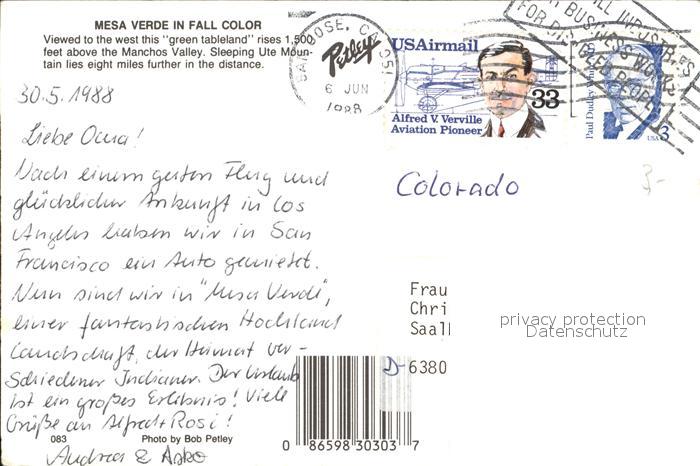 MESA VERDE IN FALL COLOR
Viewed to the west this "green tableland" rises 1,500
feet above the Manchos Valley. Sleeping Ute Moun-
tain lies eight miles further in the distance.
Petley
SAN JOSE, CA 951
6 JUN
1988
USAirmail
33
Alfred V. Verville
Aviation Pioneer
Paul Dudley White
USA 3
FOR DISABLED PEOPLE
30.5.1988
Liebe Oma!
Nach einem guten Flug und
glücklicher Ankunft in Los
Angeles haben wir in San
Francisco ein Auto gemietet.
Nun sind wir in "Mesa Verde",
einer fantastischen Hochland
Landschaft, der Heimat ver-
schiedener Indianer. Der Urlaub
ist ein großes Erlebnis! Viele
Grüße an Alfred + Rosi!
Andrea &
Colorado
3-
Frau
Chri
Saal
D-6380
privacy protection
Datenschutz
083
Photo by Bob Petley
0 86598 30303 7